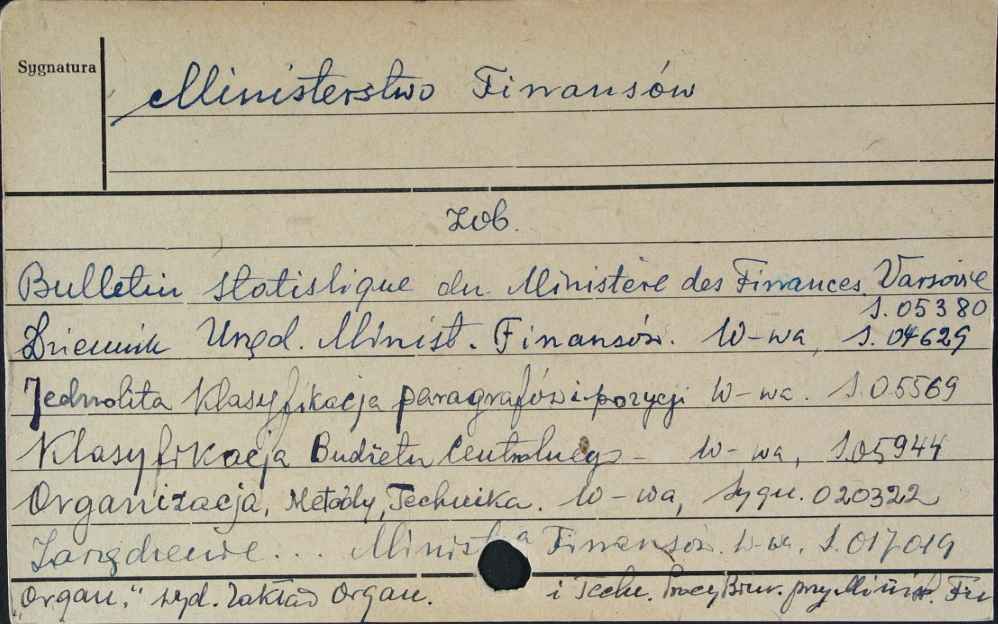 Sygnatura
Ministerstwo Finansów
zob.
Bulletin statistique du Ministère des Finances Varsovie
S. 05380
Dziennik Urzęd. Minist. Finansów. W-wa, S. 04629
Jednolita Klasyfikacja paragrafów i pozycji W-wa. S. 05569
Klasyfikacja Budżetu Centralneg- W-wa, S. 05944
Organizacja, Metody, Technika. W-wa, Sygn. 020322
Zarządzenie... Minist a Finansów. W-wa. S. 017019
„Organ." wyd. Zakład Organ. i Techn. Pracy Biur. przy Minist. Fin